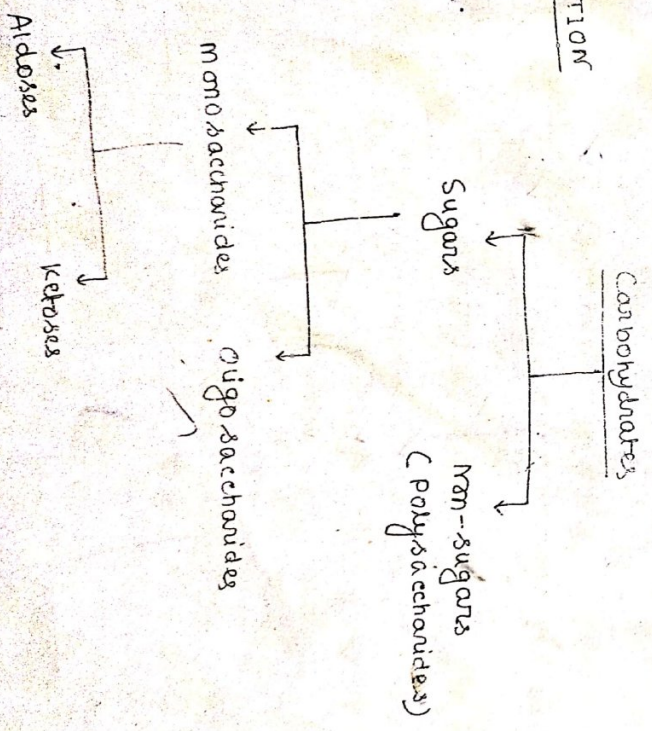 TION
Carbohydrates
Sugars
Non-sugars
(Polysaccharides)
monosaccharides
Oligosaccharides
Aldoses
Ketoses